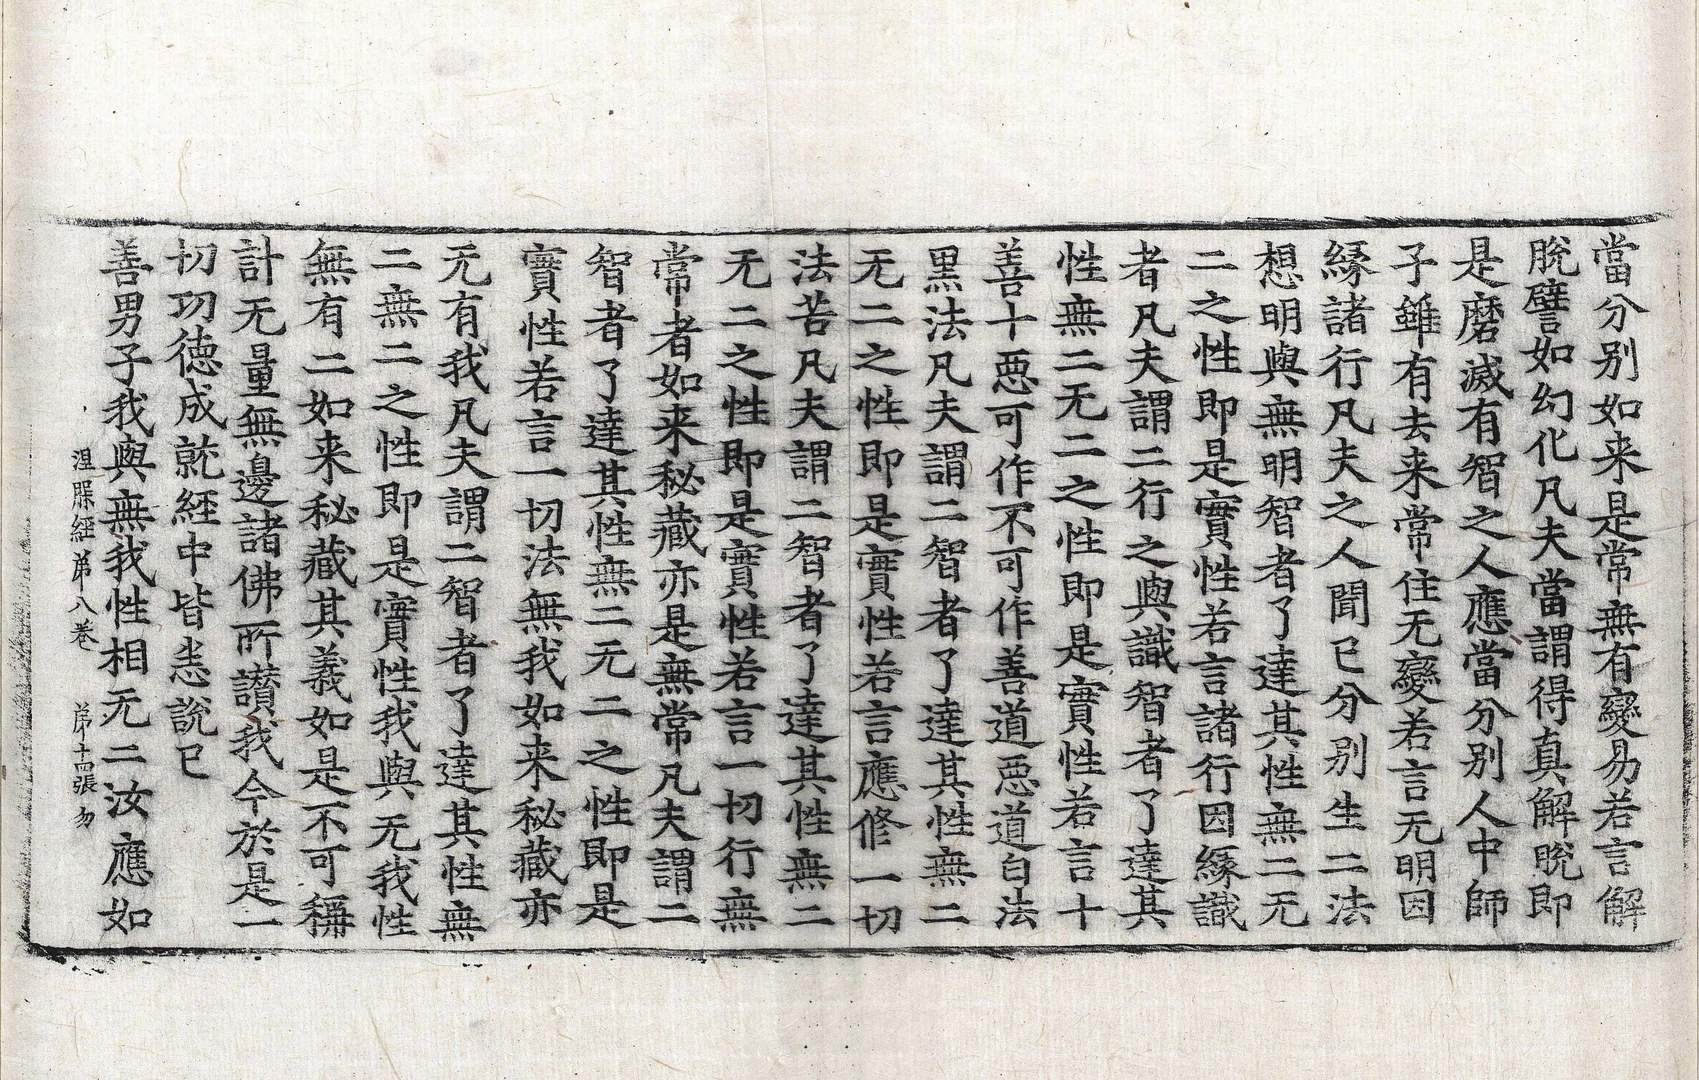 當分別如来是常無有變易若言解
脫譬如幻化凡夫當謂得真解脫即
是磨滅有智之人應當分別人中師
子雖有去来常住无變若言无明因
緣諸行凡夫之人聞已分別生二法
想明與無明智者了達其性無二无
二之性即是實性若言諸行因緣識
者凡夫謂二行之與識智者了達其
性無二无二之性即是實性若言十
善十惡可作不可作善道惡道白法
黑法凡夫謂二智者了達其性無二
无二之性即是實性若言應修一切
法苦凡夫謂二智者了達其性無二
无二之性即是實性若言一切行無
常者如来秘藏亦是無常凡夫謂二
智者了達其性無二无二之性即是
實性若言一切法無我如来秘藏亦
无有我凡夫謂二智者了達其性無
二無二之性即是實性我與无我性
無有二如来秘藏其義如是不可稱
計无量無邊諸佛所讃我今於是一
切功德成就経中皆悉說已
善男子我與無我性相无二汝應如
涅槃経第八巻 第十四張 勿